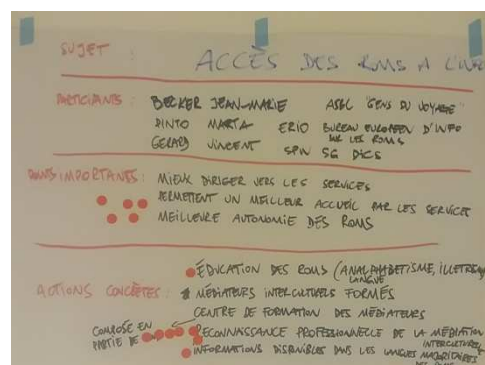 SUJET : ACCÈS DES ROMS A L'INF
PARTICIPANTS : BECKER JEAN-MARIE ASBL "GENS DU VOYAGE"
PINTO MARTA ERIO BUREAU EUROPEEN D'INFO
SUR LES ROMS
GERARD VINCENT SPW SG DICS
IMPORTANTES : MIEUX DIRIGER VERS LES SERVICES
PERMETTENT UN MEILLEUR ACCUEIL PAR LES SERVICES
MEILLEURE AUTONOMIE DES ROMS
ÉDUCATION DES ROMS (ANALPHABETISME, ILLETRISME
LANGUE
ACTIONS CONCRÈTES : MÉDIATEURS INTERCULTURELS FORMÉS
CENTRE DE FORMATION DES MÉDIATEURS
COMPOSÉ EN
PARTIE DE RECONNAISSANCE PROFESSIONNELLE DE LA MÉDIATION
INTERCULTUREL
INFORMATIONS DISPONIBLES DANS LES LANGUES MAJORITAIRES